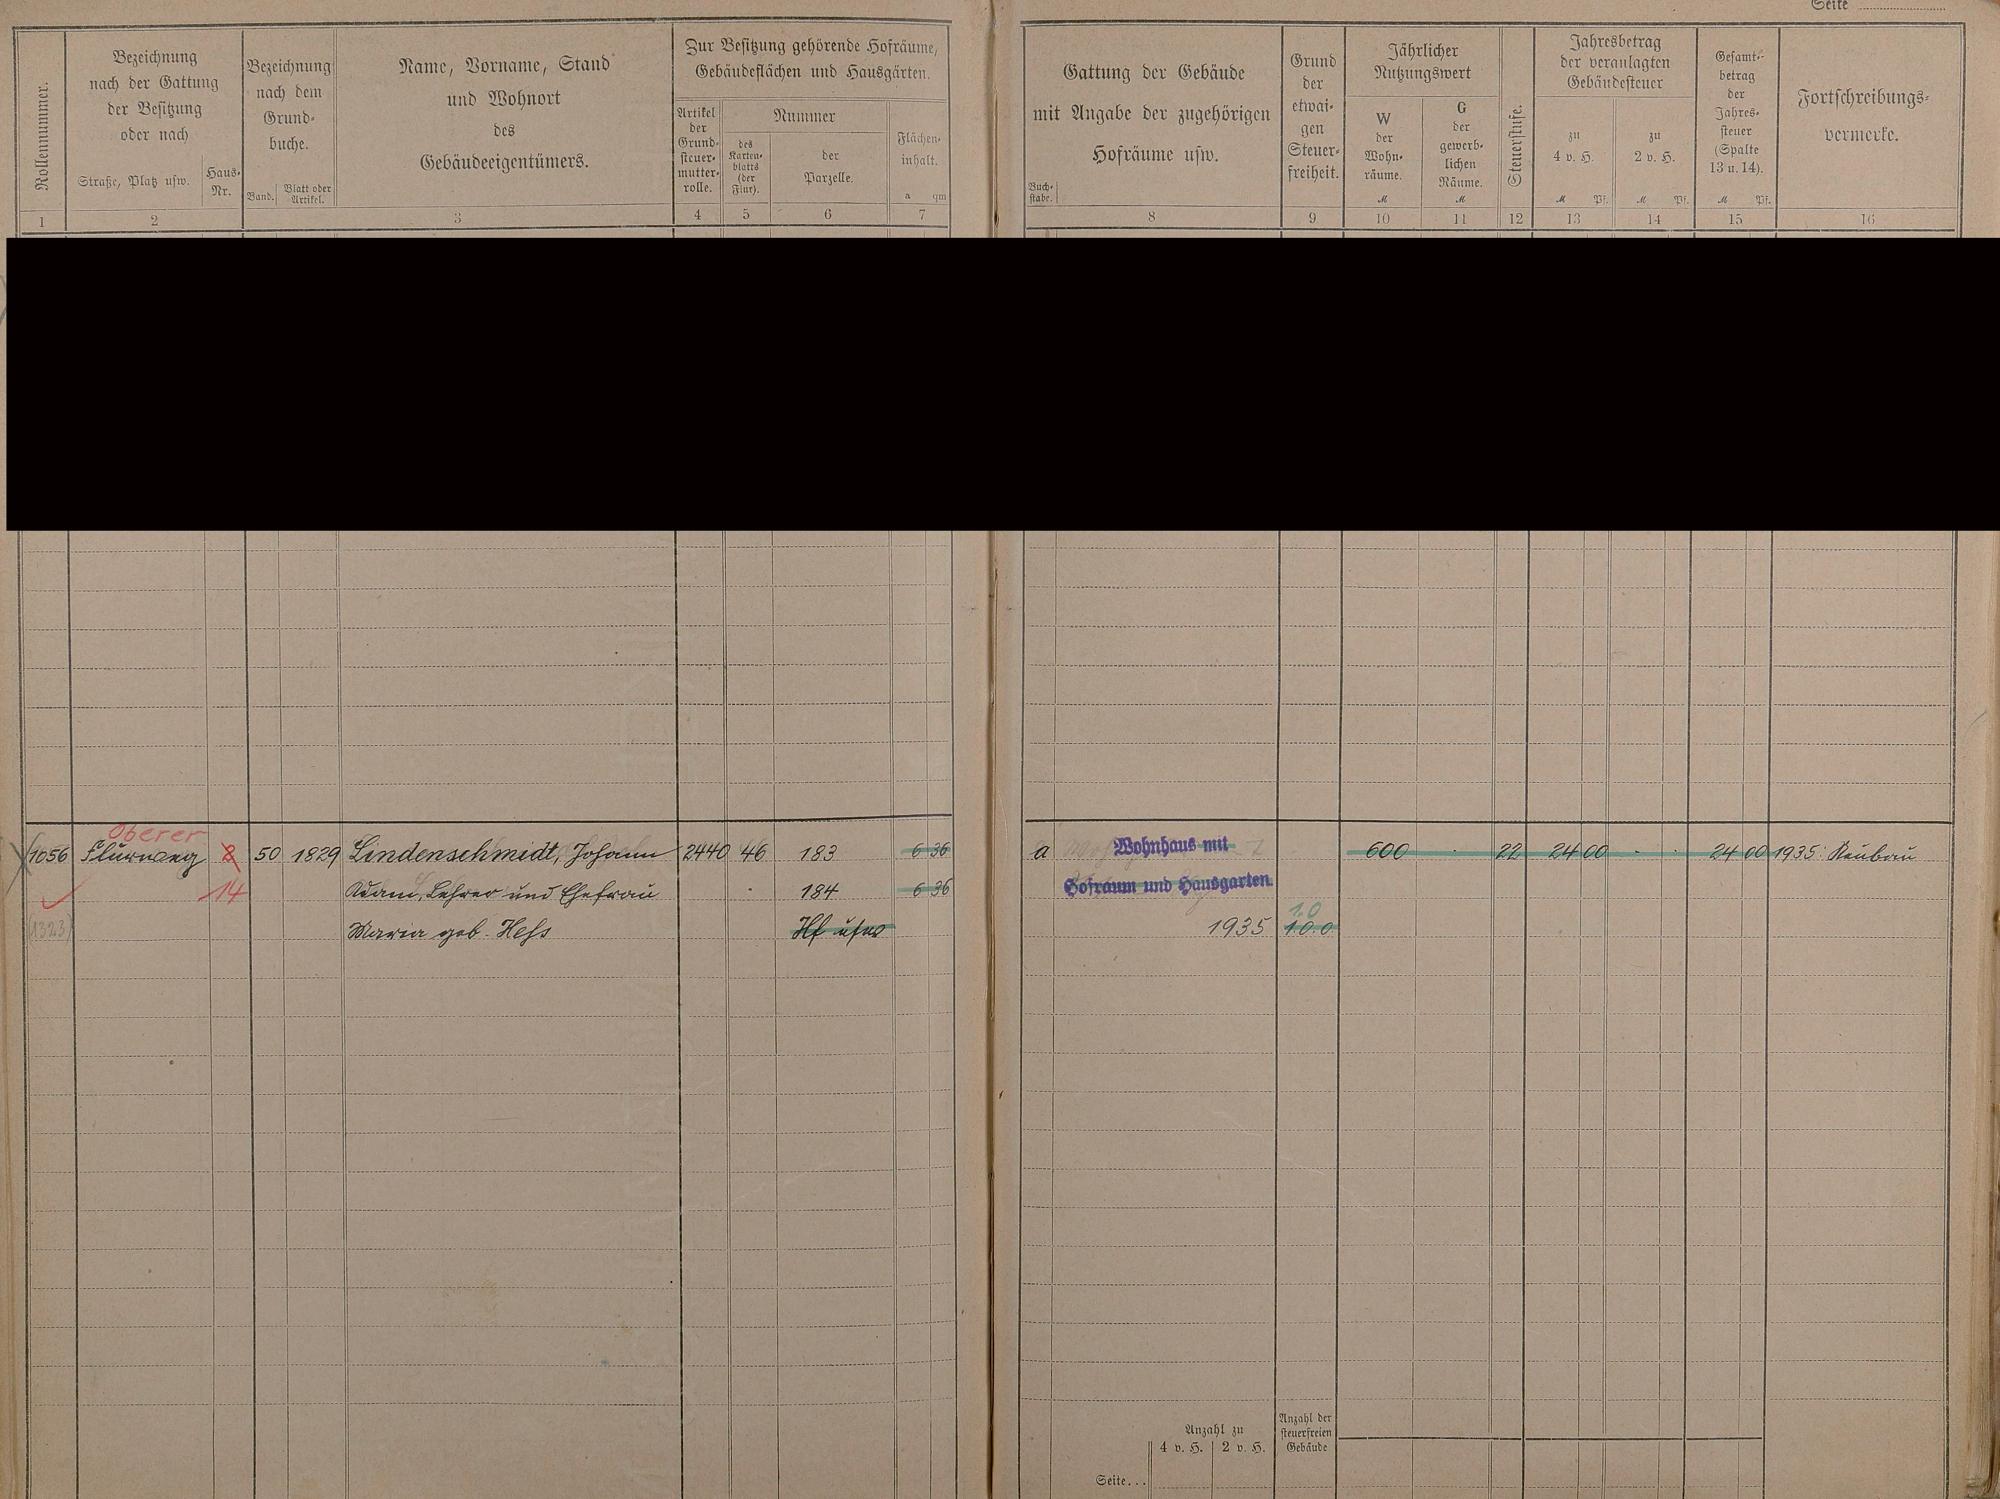 Seite
Rollennummer.
Bezeichnung
nach der Gattung
der Besitzung
oder nach
Straße, Platz usw.
Haus-
Nr.
Bezeichnung
nach dem
Grund-
buche.
Band.
Blatt oder
Artikel.
Name, Vorname, Stand
und Wohnort
des
Gebäudeeigentümers.
Zur Besitzung gehörende Hofräume,
Gebäudeflächen und Hausgärten.
Artikel
der
Grund-
steuer-
mutter-
rolle.
Nummer
des
Karten-
blatts
(der
Flur).
der
Parzelle.
Flächen-
inhalt.
a qm
Gattung der Gebäude
mit Angabe der zugehörigen
Hofräume usw.
Buch-
stabe.
Grund
der
etwai-
gen
Steuer-
freiheit.
Jährlicher
Nutzungswert
W
der
Wohn-
räume.
M
G
der
gewerb-
lichen
Räume.
M
Steuerstufe.
Jahresbetrag
der veranlagten
Gebäudesteuer
zu
4 v. H.
M Pf.
zu
2 v. H.
M Pf.
Gesamt-
betrag
der
Jahres-
steuer
(Spalte
13 u. 14).
M Pf.
Fortschreibungs-
vermerke.
1 2 3 4 5 6 7 8 9 10 11 12 13 14 15 16
Oberer
1056 Flurweg 2 50 1829 Lindenschmidt, Johann 2440 46 183 6 36 a Wohnhaus mit 600 22 24 00 24 00 1935: Neubau
14 Adam, Lehrer und Ehefrau 184 6 36 Hofraum und Hausgarten.
(1323) Maria geb. Hess Hf usw 1935 1.0.0
1.0
Anzahl zu
4 v. H. 2 v. H.
Anzahl der
steuerfreien
Gebäude
Seite...